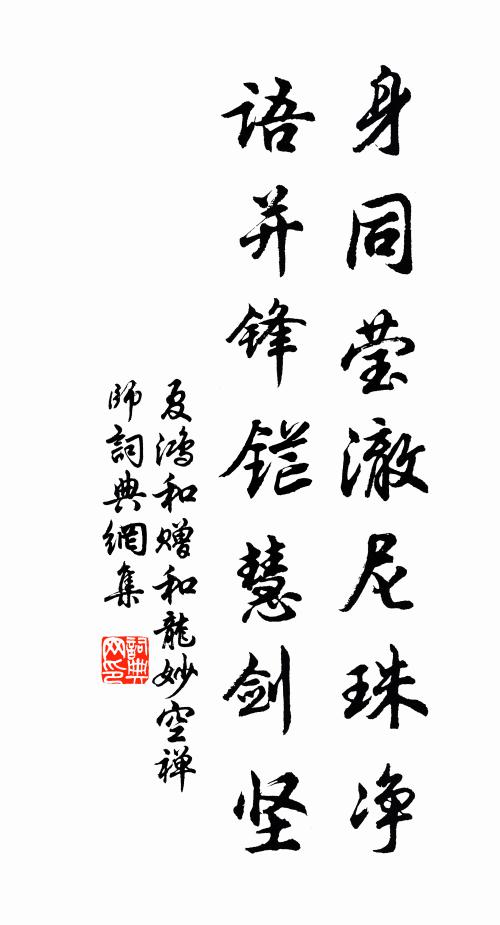 身同莹澈尼珠净
语并锋铓慧剑坚
夏鸿和赠和龍妙空禅
師詞典網集
詞典
网印